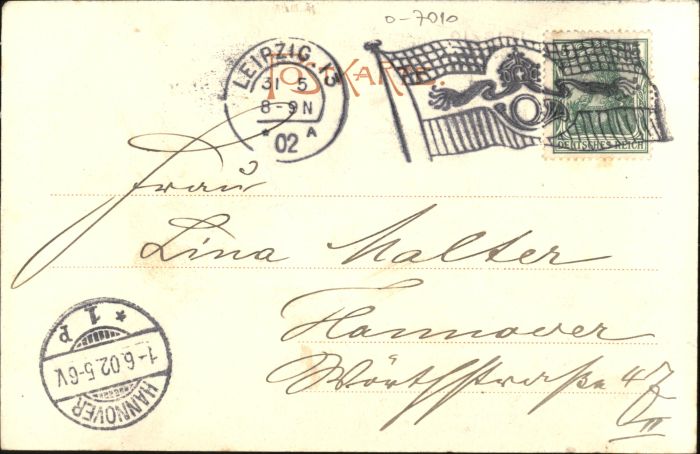 0-7010
POSTKARTE.
LEIPZIG. 13
31 5
8-9 N
* 02 A
DEUTSCHES REICH
Frau
Lina Malter
Hannover
Wörthstraße 47
II
* 1 P
1-6.02.5-6V
HANNOVER